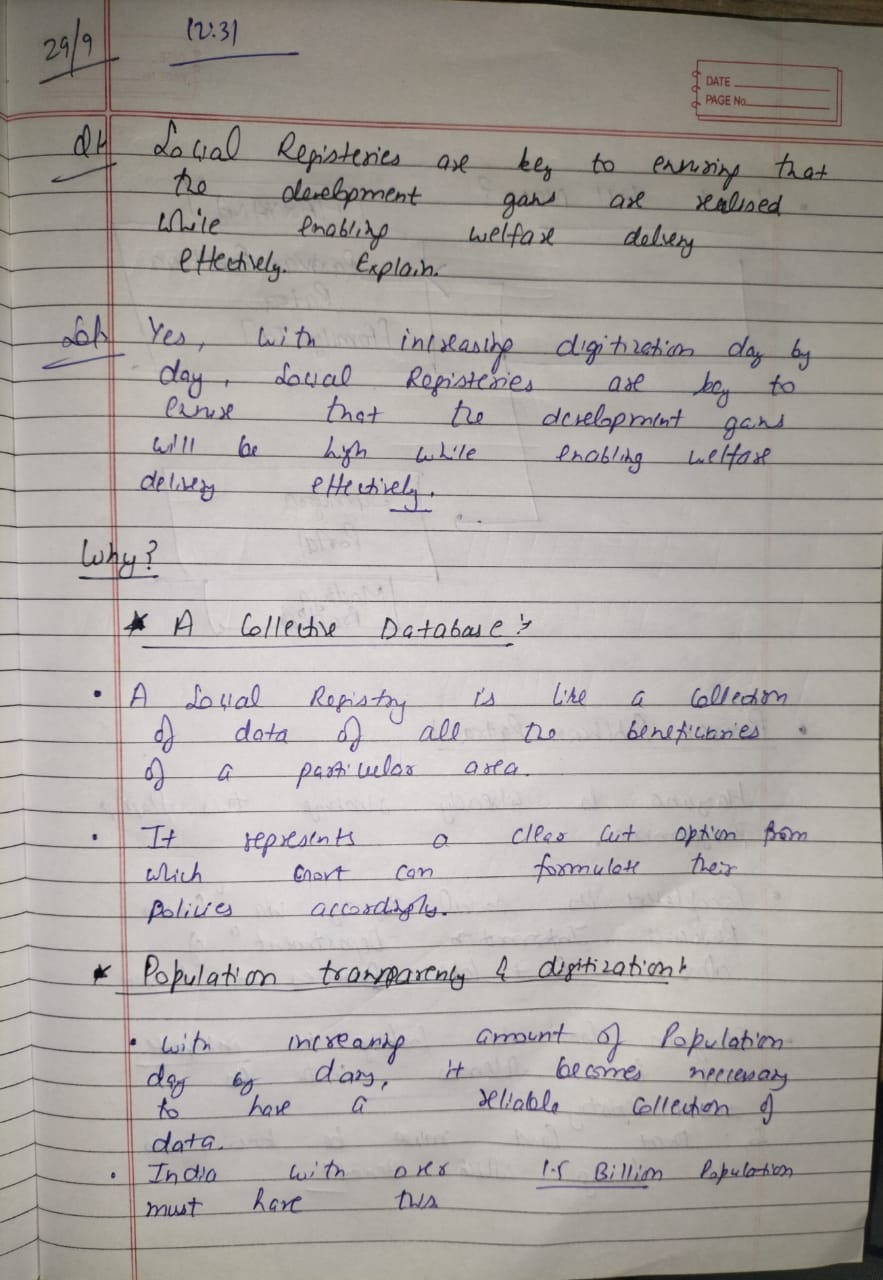 29/9
12:31
DATE
PAGE No.
Q1 Social Registeries are key to ensuring that
the development gans are realised
while enabling welfare delvery
effectively. Explain.
Sol. Yes, with increasing digitization day by
day, Social Registeries are key to
ensure that the development gans
will be high while enabling welfare
delivery effectively.
Why?
* A Collective Database :-
• A Social Registry is like a collection
of data of all the beneficiaries
of a particular area.
• It represents a clear cut option from
which Govt can formulate their
policies accordingly.
* Population transparency & digitization :-
• With increasing amount of Population
day by day, it becomes neccessary
to have a reliable collection of
data.
• India with over 1.5 Billion Population
must have this